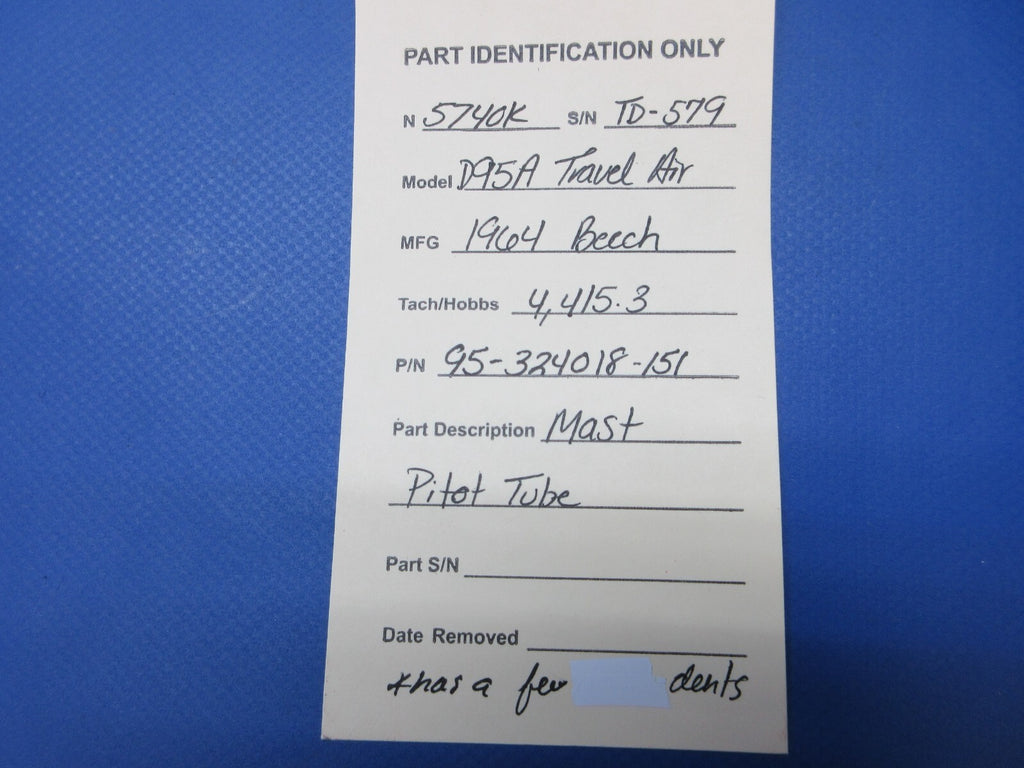 PART IDENTIFICATION ONLY
N 5740K S/N TD-579
Model D95A Travel Air
MFG 1964 Beech
Tach/Hobbs 4,415.3
P/N 95-324018-151
Part Description Mast
Pitot Tube
Part S/N
Date Removed
*has a few dents